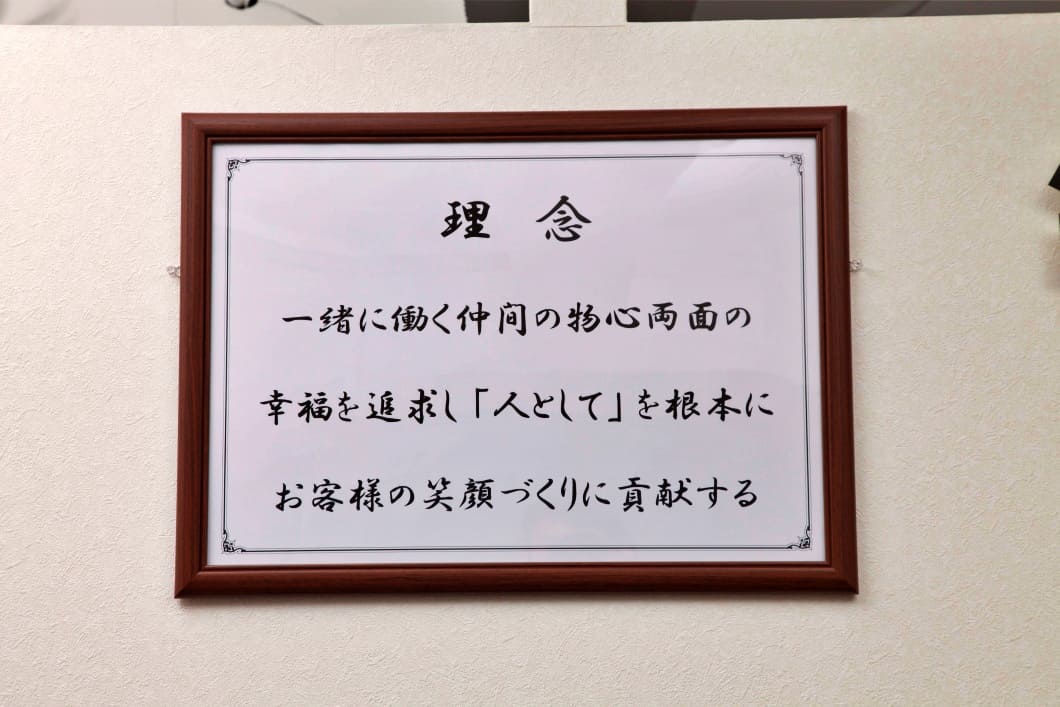 理 念
一緒に働く仲間の物心両面の
幸福を追求し「人として」を根本に
お客様の笑顔づくりに貢献する